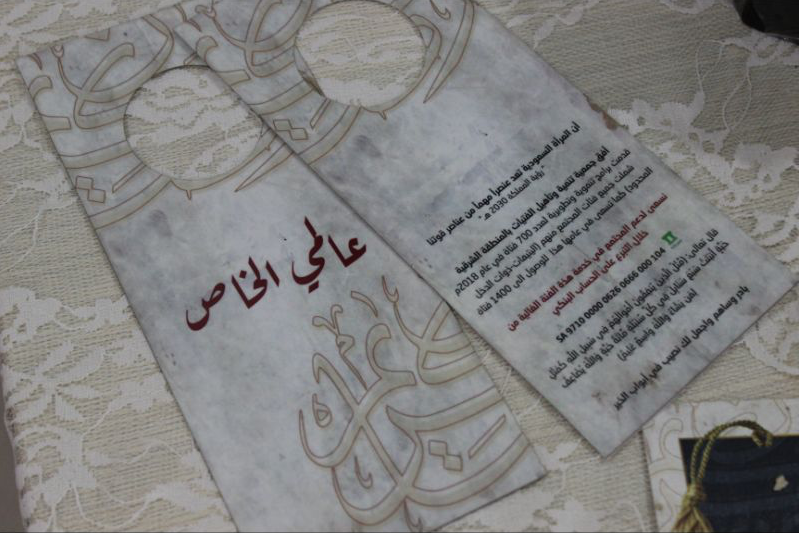 عالمي الخاص
أن المرأة السعودية تعد عنصراً مهماً من عناصر قوتنا
رؤية المملكة 2030 هـ "
أفق جمعية تنمية وتأهيل الفتيات بالمنطقة الشرقية
قدمت برامج تنموية وتطويرية لعدد 700 فتاة في عام 2018م
شملت جميع فئات المجتمع منهم (اليتيمات-ذوات الدخل
المحدود) كما تسعى في عامها هذا الوصول الى 1400 فتاة
نسعى لدعم المجتمع في خدمة هذه الفئة الغالية من
خلال التبرع على الحساب البنكي
SA 9710 0000 0626 0666 000 104
قال تعالى: (مَّثَلُ الَّذِينَ يُنفِقُونَ أَمْوَالَهُمْ فِي سَبِيلِ اللَّهِ كَمَثَلِ
حَبَّةٍ أَنبَتَتْ سَبْعَ سَنَابِلَ فِي كُلِّ سُنبُلَةٍ مِّائَةُ حَبَّةٍ وَاللَّهُ يُضَاعِفُ
لِمَن يَشَاءُ وَاللَّهُ وَاسِعٌ عَلِيمٌ)
بادر وساهم واجعل لك نصيب في أبواب الخير